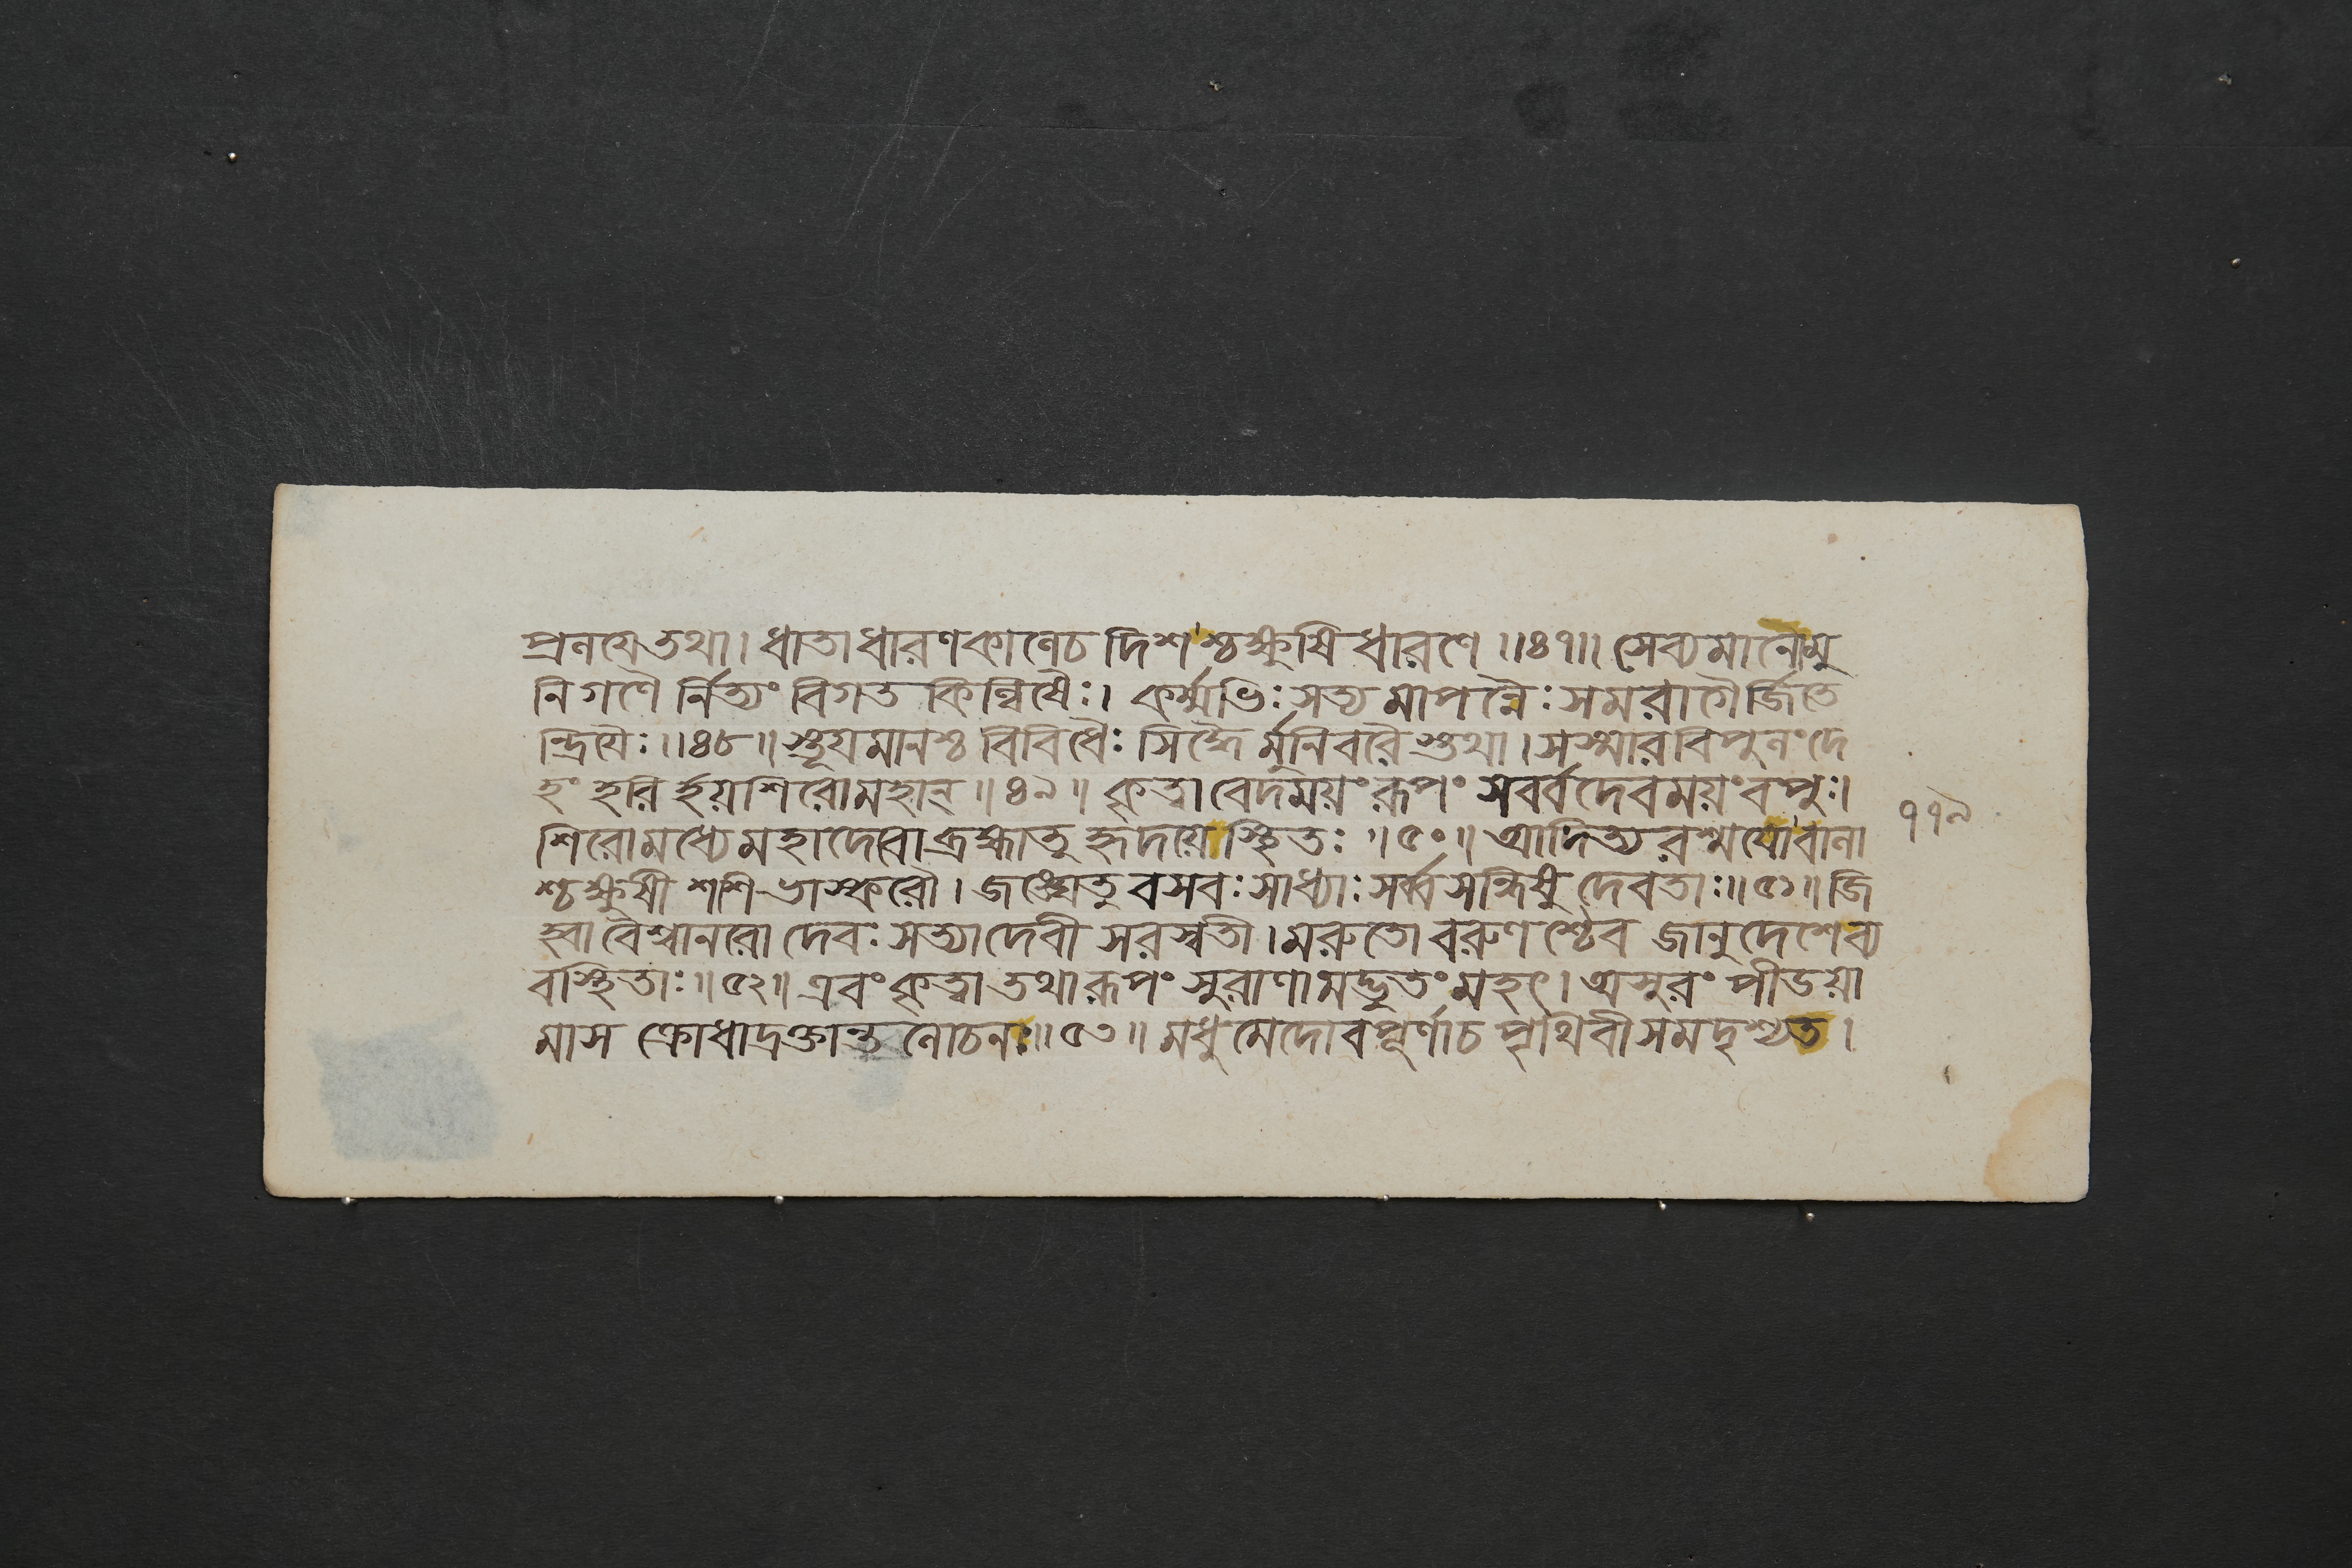 প্রলয়ে তথা। ধাতা ধারণকালে চ দিশশ্চক্ষুষি ধারণে ॥৪৭॥ সেব্যমানৌমু
নিগণৈ র্নিত্যং বিগত কিল্বিষৈঃ। কর্ম্মভিঃ সত্য মাপন্নৈঃ সমরাগৈর্জিতে
ন্দ্রিয়ৈঃ ॥৪৮॥ স্তূয়মানশ্চ বিবিধৈঃ সিদ্ধৈ র্মুনিবরৈ স্তথা। সস্মার বিপুলং দে
হং হরি র্হয়শিরো মহান্ ॥৪৯॥ কৃত্বা বেদময়ং রূপং সবর্বদেবময়ং বপুঃ।
শিরোমধ্যে মহাদেবো ব্রহ্মা তু হৃদয়ে স্থিতঃ ॥৫০॥ আদিত্য রশ্ময়ো বালা
শ্চক্ষুষী শশি ভাস্করৌ। জঙ্ঘে তু বসবঃ সাধ্যাঃ সর্ব্ব সন্ধিষু দেবতাঃ ॥৫১॥ জি
হ্বা বৈশ্বানরো দেবঃ সত্যা দেবী সরস্বতী। মরুতো বরুণ শ্চৈব জানুদেশে ব্য
বস্থিতাঃ ॥৫২॥ এবং কৃত্বা তথা রূপং সুরাণামদ্ভুতং মহৎ। অসুরং পীডয়া
মাস ক্রোধাদ্রক্তান্ত লোচনঃ ॥৫৩॥ মধুমেদোবপূর্ণা চ পৃথিবী সমদৃশ্যত।
১১৯